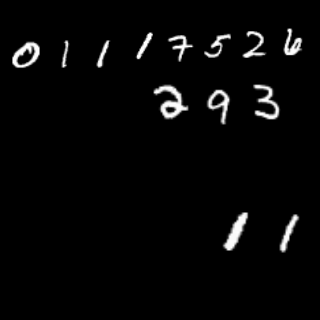 01117526
293
11